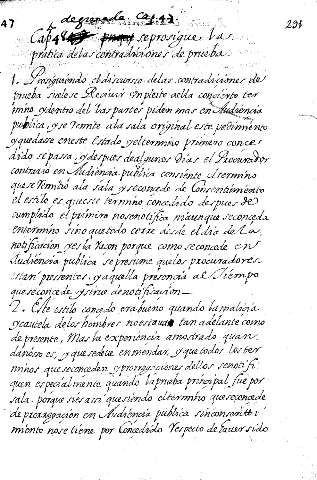 de quarele Cap. 47
47
291
Cap. 48 se prosigue las
pratica de las contradiciones de prueba
1. Prosiguiendo el discurso de las contradiciones de
prueba suelese Recivir un pleito a ella con cierto ter
mino y dentro del las partes piden mas en Audiencia
publica, y se Remite a la sala original este pedimiento
y quedase en este estado, y el termino primero conce
dido se pasa, y despues de algunos dias el Procurador
contrario en Audiencia publica consiente el termino
que se Remitio a la sala y se concede de Consentimiento
el estilo es que este termino concedido despues de
cumplido el primero no se notifica ni aunque se conceda
en termino sino que todo corre desde el dia de la
notificacion y es la razon porque como se concede en
Audiencia publica se presume que los procuradores
estan presentes, y aquella presencia al Tiempo
que se concede sirve de notificacion
2. Este estilo cerrado era bueno quando la malicia
y cautela de los hombres no estava tan adelante como
de presente, Mas la experiencia a mostrado quan
dañoso es, y que se deve enmendar, y que todos los ter
minos que se conceden y prorrogaciones dellos se notifi
quen especialmente quando la prueba principal fue por
sala. porque si es asi que siendo el termino que se concede
de prorrogacion en Audiencia publica sin consenti
miento no se tiene por Concedido Respecto de haver sido